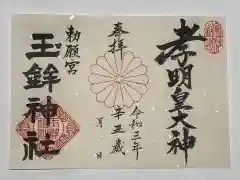 孝明皇大神
奉拝
令和三年
辛丑歳
月 日
勅願宮
玉鉾神社